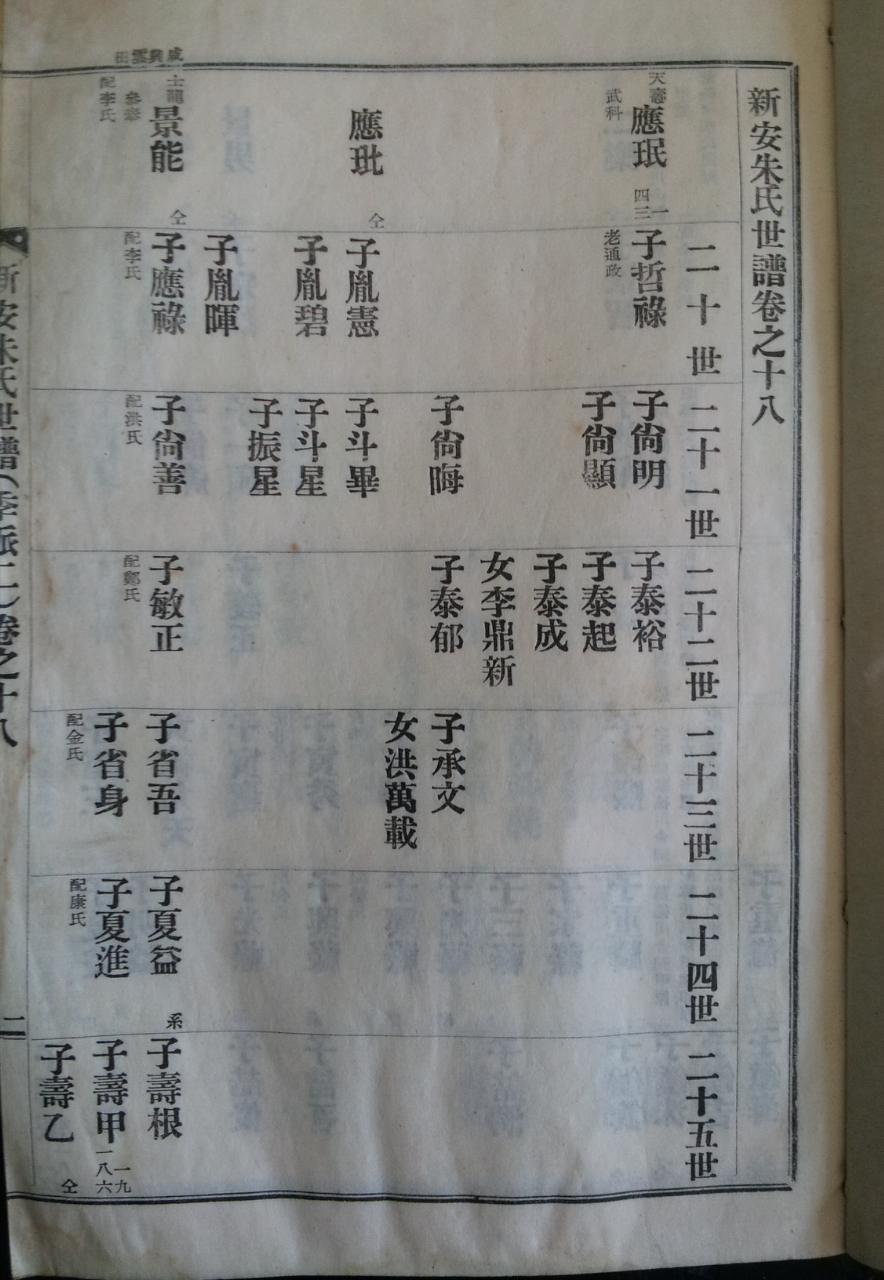 新安朱氏世譜卷之十八
二十世
二十一世
二十二世
二十三世
二十四世
二十五世
天壽
應珉
武科
四三一
應玭
仝
士龍
景能
參奉
配李氏
仝
子哲祿
老通政
子胤憲
子胤碧
子胤暉
子應祿
配李氏
子尙明
子尙顯
子尙晦
子斗畢
子斗星
子振星
子尙善
配洪氏
子泰裕
子泰起
子泰成
女李鼎新
子泰郁
子敏正
配鄭氏
子承文
女洪萬載
子省吾
子省身
配金氏
子夏益
系
子夏進
配康氏
子壽根
子壽甲
一九
一八六
子壽乙
仝
新安朱氏世譜(季派二)卷之十八
二